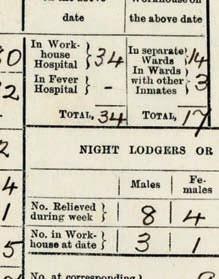 date
the above date
In Work-
house } 34
Hospital
In separate
Wards } 14
In Fever
Hospital } -
In Wards
with other } 3
Inmates
TOTAL, 34
TOTAL, 17
NIGHT LODGERS OR
Males
Fe-
males
No. Relieved
during week } 8 4
No. in Work-
house at date } 3 1
No. at corresponding